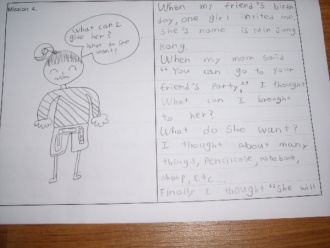 Mission 4.
What can I
give her?
What do she
want?
When my friend's birth
day, one girl invited me.
She's name is Min Jung
Kong.
When my mom said
"You can go to your
friend's Party," I thought
What can I brought
to her?
What do she want?
I thought about many
things, Pencilcase, notebook,
etc...
Finally I thought "She will